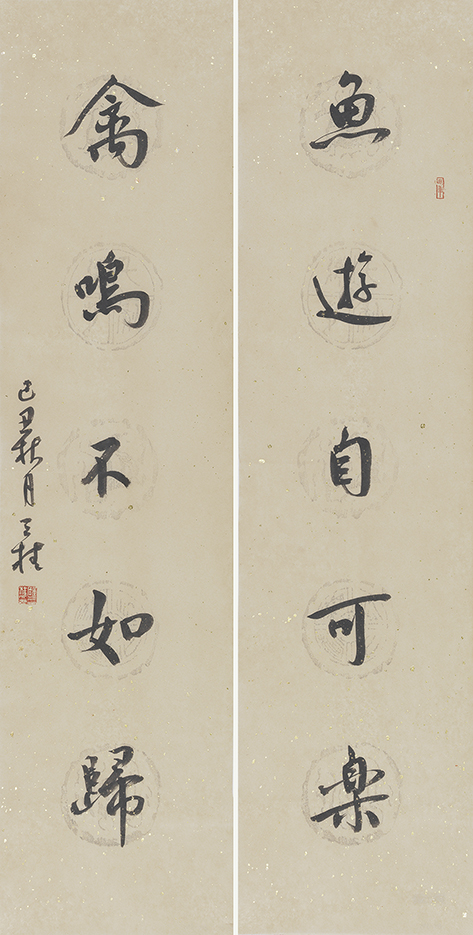 魚遊自可樂
禽鳴不如歸
己丑秋月